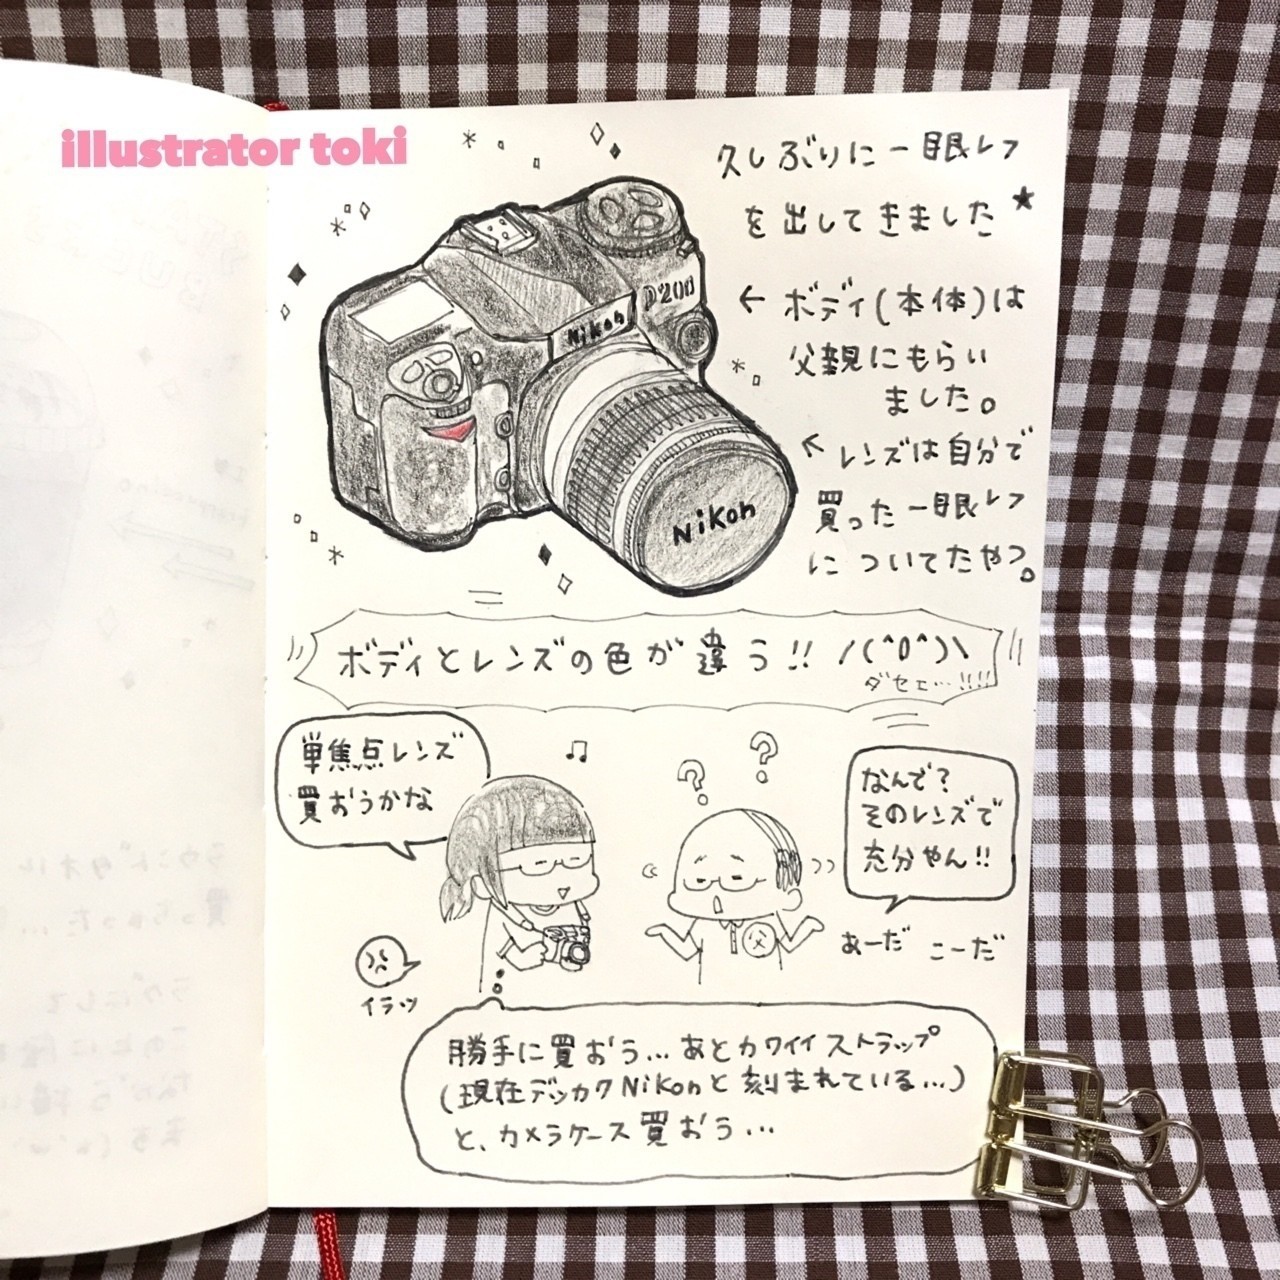 illustrator toki
久しぶりに一眼レフ
を出してきました★
← ボディ(本体)は
父親にもらい
ました。
← レンズは自分で
買った一眼レフ
についてたやつ。
Nikon
D200
Nikon
ボディとレンズの色が違う!! /(^0^)\
ダセェ…!!!!
単焦点レンズ
買おうかな
なんで?
そのレンズで
充分やん!!
父
あーだ こーだ
イラッ
勝手に買おう…あとカワイイストラップ
(現在デッカクNikonと刻まれている…)
と、カメラケース買おう…